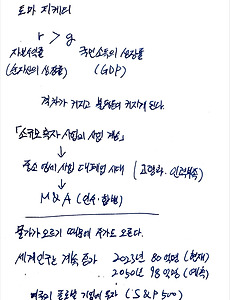 토마 피케티
r > g
자본수익률 국민소득의 성장률
(순자산의 성장률) (GDP)
격차가 커지고 커지게 된다.
「스위모 투자 사업의 사업 개승」
↓
중소 영세 사업 대폐업 시대 (고령화·인력부족)
↓
M&A (인수·합병)
물가가 오르기 때문에 주가도 오른다.
세계인구는 계속 증가 2023년 80억명 (현재)
2050년 98억명 (예측)
기업에 투자 (S&P500)